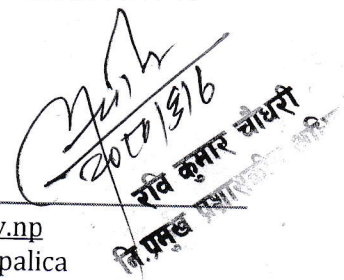 २०८०|६|६
रवि कुमार चौधरी
नि.प्रमुख प्रशासकीय अधि
v.np
palica